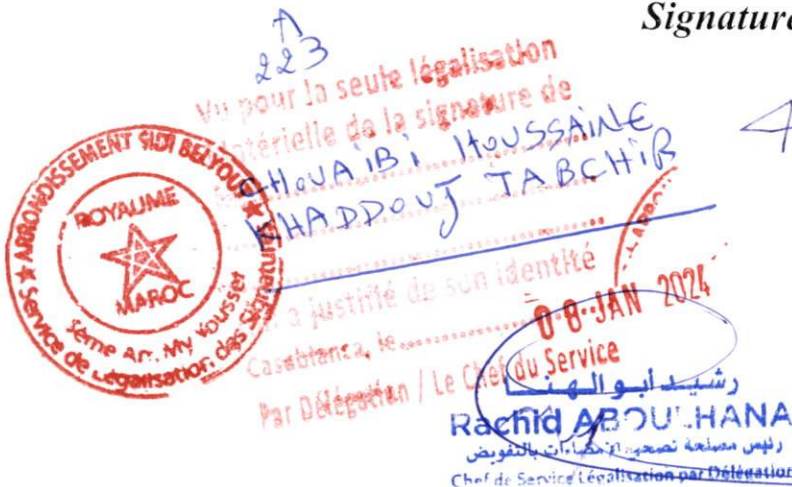 Signature
A
223
Vu pour la seule légalisation
matérielle de la signature de
CHOUAIBI HOUSSAINE
KHADDOUJ TABCHIR
a justifié de son identité
Casablanca, le
08 JAN 2024
Par Délégation / Le Chef du Service
ARRONDISSEMENT SIDI BELYOUT
ROYAUME
MAROC
5ème Arr. My Youssef
Service de Légalisation des Signatures
رشيد أبو الهنا
Rachid ABOUL HANA
رئيس مصلحة تصحيح الإمضاءات بالتفويض
Chef de Service Légalisation par Délégation